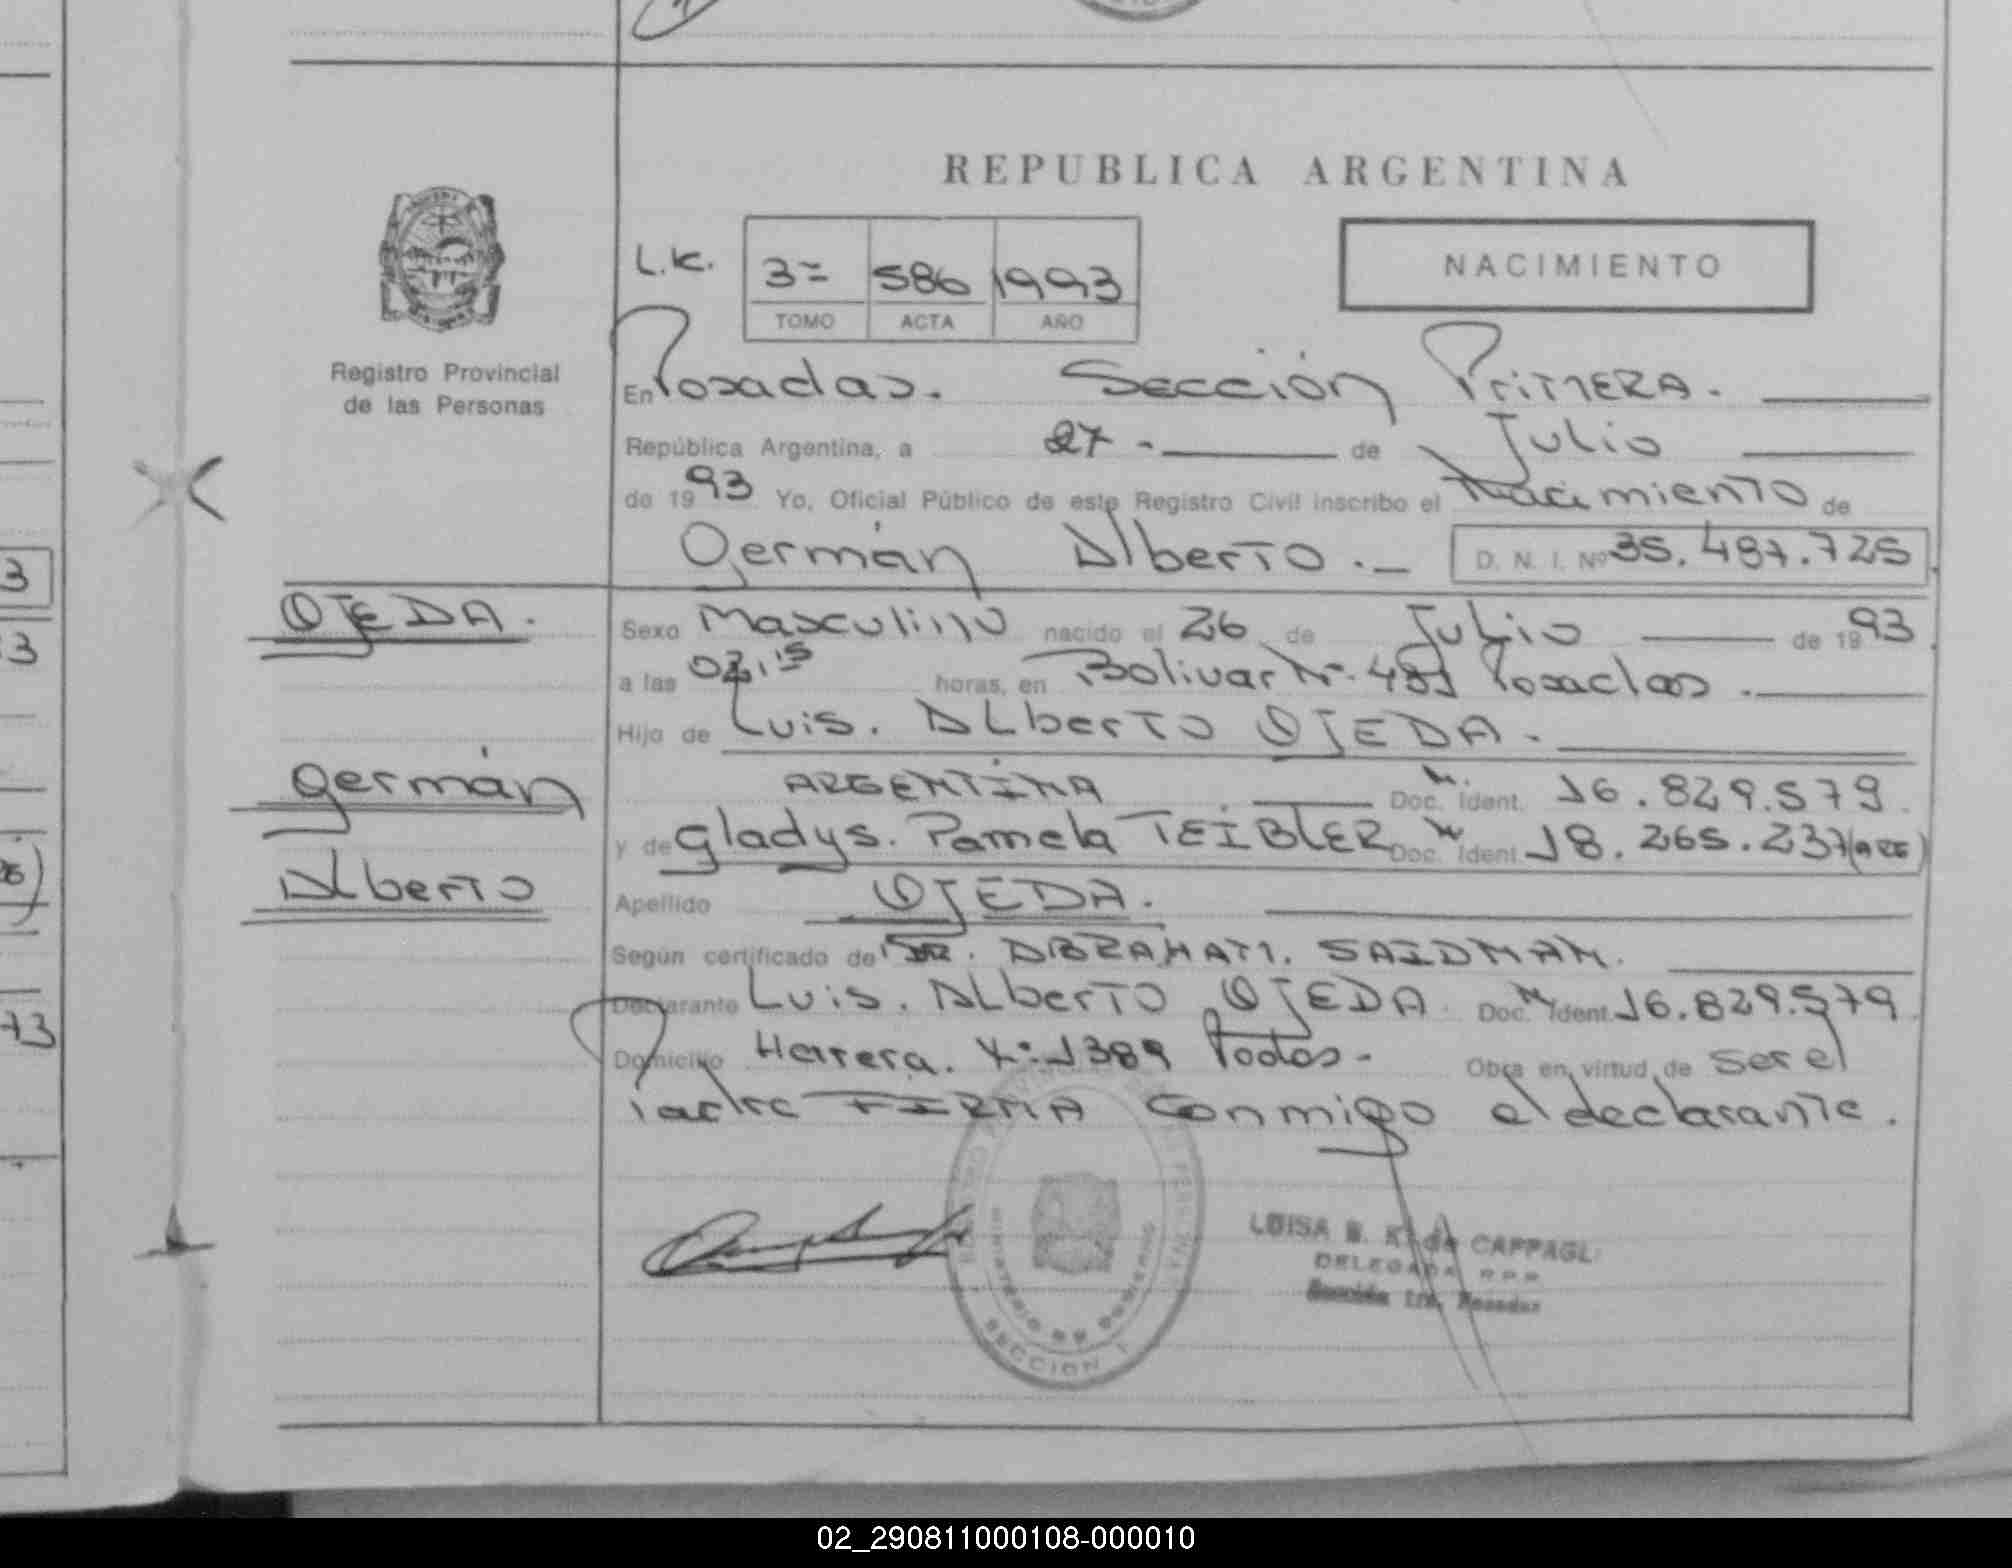 REPUBLICA ARGENTINA
L.K.
3= 586 1993
TOMO ACTA AÑO
NACIMIENTO
Registro Provincial
de las Personas
En Posadas. Sección PRIMERA.
República Argentina, a 27 - de Julio
de 19 93 Yo, Oficial Público de este Registro Civil inscribo el Nacimiento de
Germán Alberto.- D. N. I. Nº 35.487.725
OJEDA.
Germán
Alberto
Sexo Masculino nacido el 26 de Julio de 19 93
a las 02,15 horas, en Bolivar Nº Posadas.
Hijo de Luis. Alberto OJEDA.
ARGENTINA Doc. Ident. 16.829.579
y de Gladys. Pamela TEIBLER Doc. Ident. 18.265.237 (ARG)
Apellido OJEDA.
Según certificado de DR. ABRAHAM. SAIDMAN.
Declarante Luis. Alberto OJEDA. Doc. Ident. 16.829.579
Domicilio Herrera. Nº 1389 Obra en virtud de ser el
Padre FIRMA conmigo el declarante.
LUISA B. K. de CAPPAGLI
DELEGADA R.P.P.
Sección 1ra. Posadas
MINISTERIO DE GOBIERNO
SECCION 1
3
3
73
02_290811000108-000010